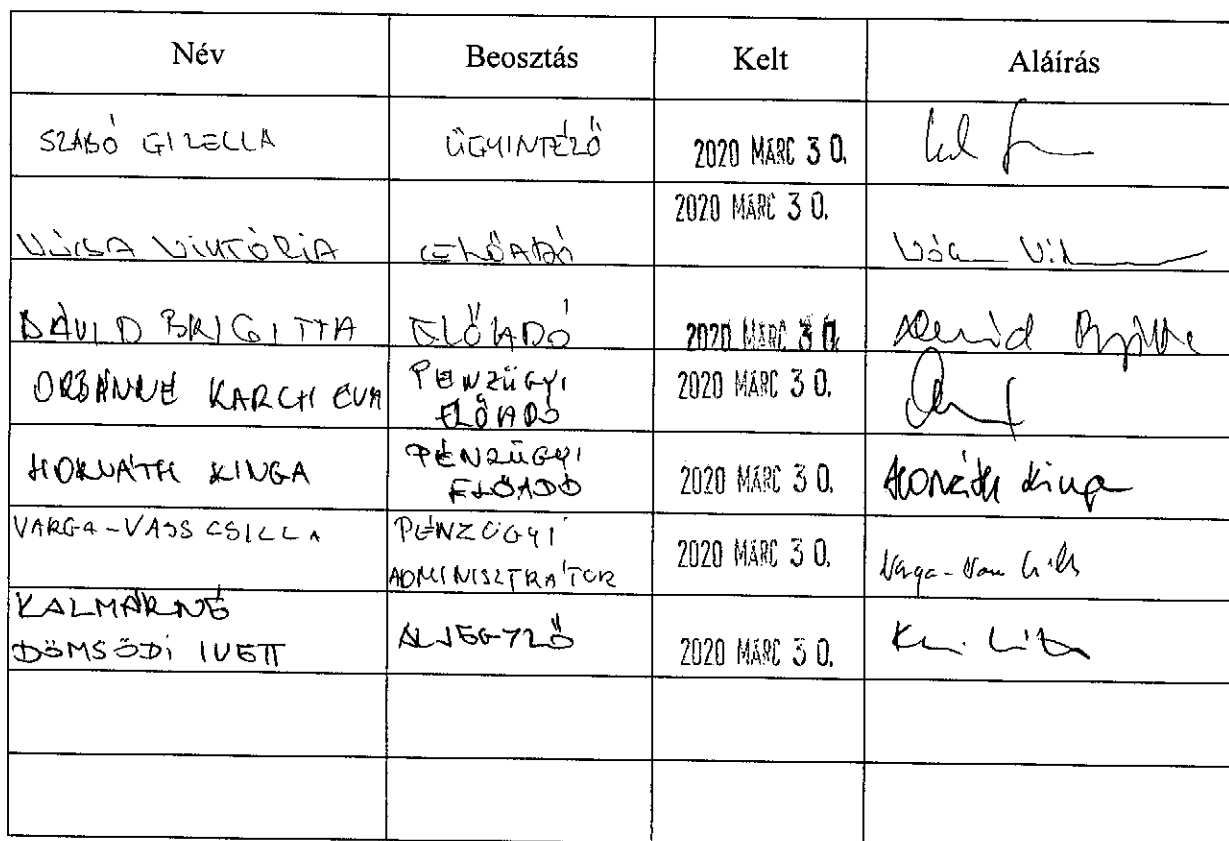 Név Beosztás Kelt Aláírás
SZABÓ GIZELLA ÜGYINTÉZŐ 2020 MÁRC 30.
2020 MÁRC 30.
VIKTÓRIA ELŐADÓ
DÁVID BRIGITTA ELŐADÓ 2020 MÁRC 30. Dávid Brigitta
ORBÁNNÉ KARCH ÉVA PÉNZÜGYI
ELŐADÓ 2020 MÁRC 30.
HORVÁTH KINGA PÉNZÜGYI
ELŐADÓ 2020 MÁRC 30. Horváth Kinga
VARGA-VASS CSILLA PÉNZÜGYI
ADMINISZTRÁTOR 2020 MÁRC 30. Varga-Vass Csilla
KALMÁRNÉ
DÖMSÖDI IVETT ALJEGYZŐ 2020 MÁRC 30.